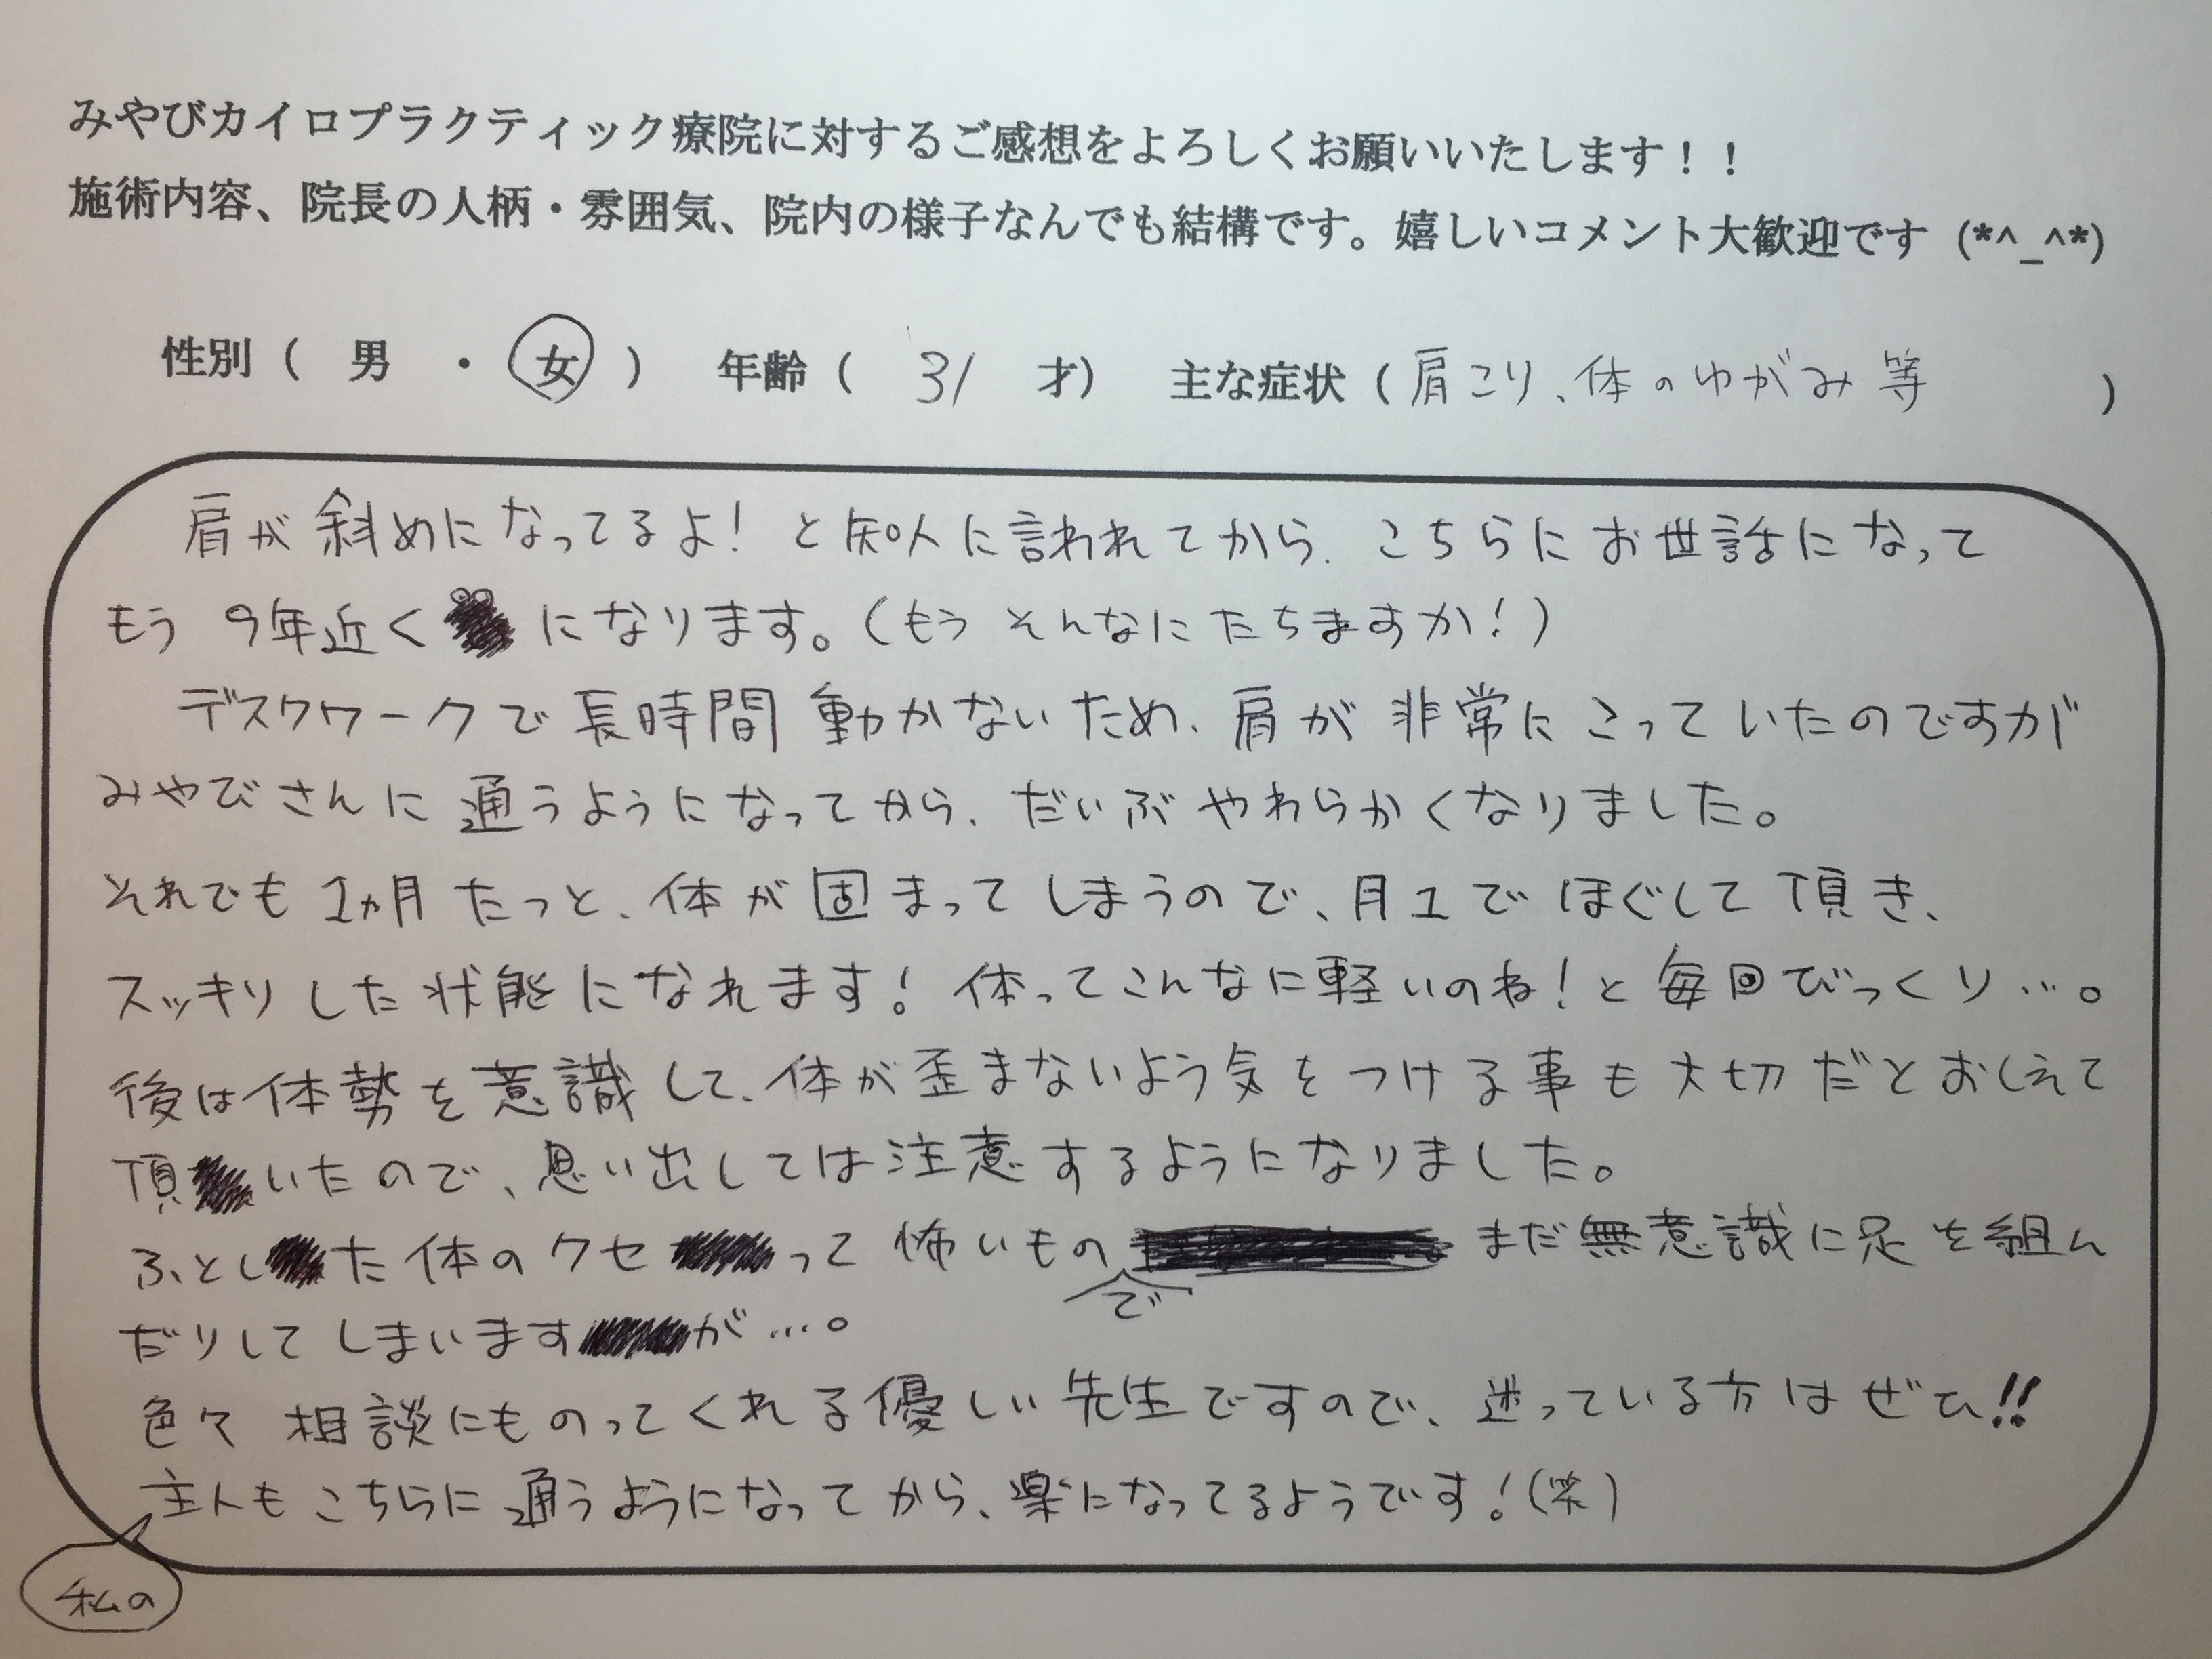 みやびカイロプラクティック療院に対するご感想をよろしくお願いいたします！！
施術内容、院長の人柄・雰囲気、院内の様子なんでも結構です。嬉しいコメント大歓迎です (*^_^*)
性別（ 男 ・ 女 ） 年齢（ 31 才） 主な症状（肩こり、体のゆがみ等 ）
肩が斜めになってるよ！と知人に言われてから、こちらにお世話になって
もう9年近くになります。（もうそんなにたちますか！）
デスクワークで長時間動かないため、肩が非常にこっていたのですが
みやびさんに通うようになってから、だいぶやわらかくなりました。
それでも1ヵ月たつと、体が固まってしまうので、月1でほぐして頂き、
スッキリした状態になれます！体ってこんなに軽いのね！と毎回びっくり…。
後は体勢を意識して、体が歪まないよう気をつける事も大切だとおしえて
頂いたので、思い出しては注意するようになりました。
ふとした体のクセって怖いものでまだ無意識に足を組ん
だりしてしまいますが…。
色々相談にものってくれる優しい先生ですので、迷っている方はぜひ!!
私の主人もこちらに通うようになってから、楽になってるようです！(笑)